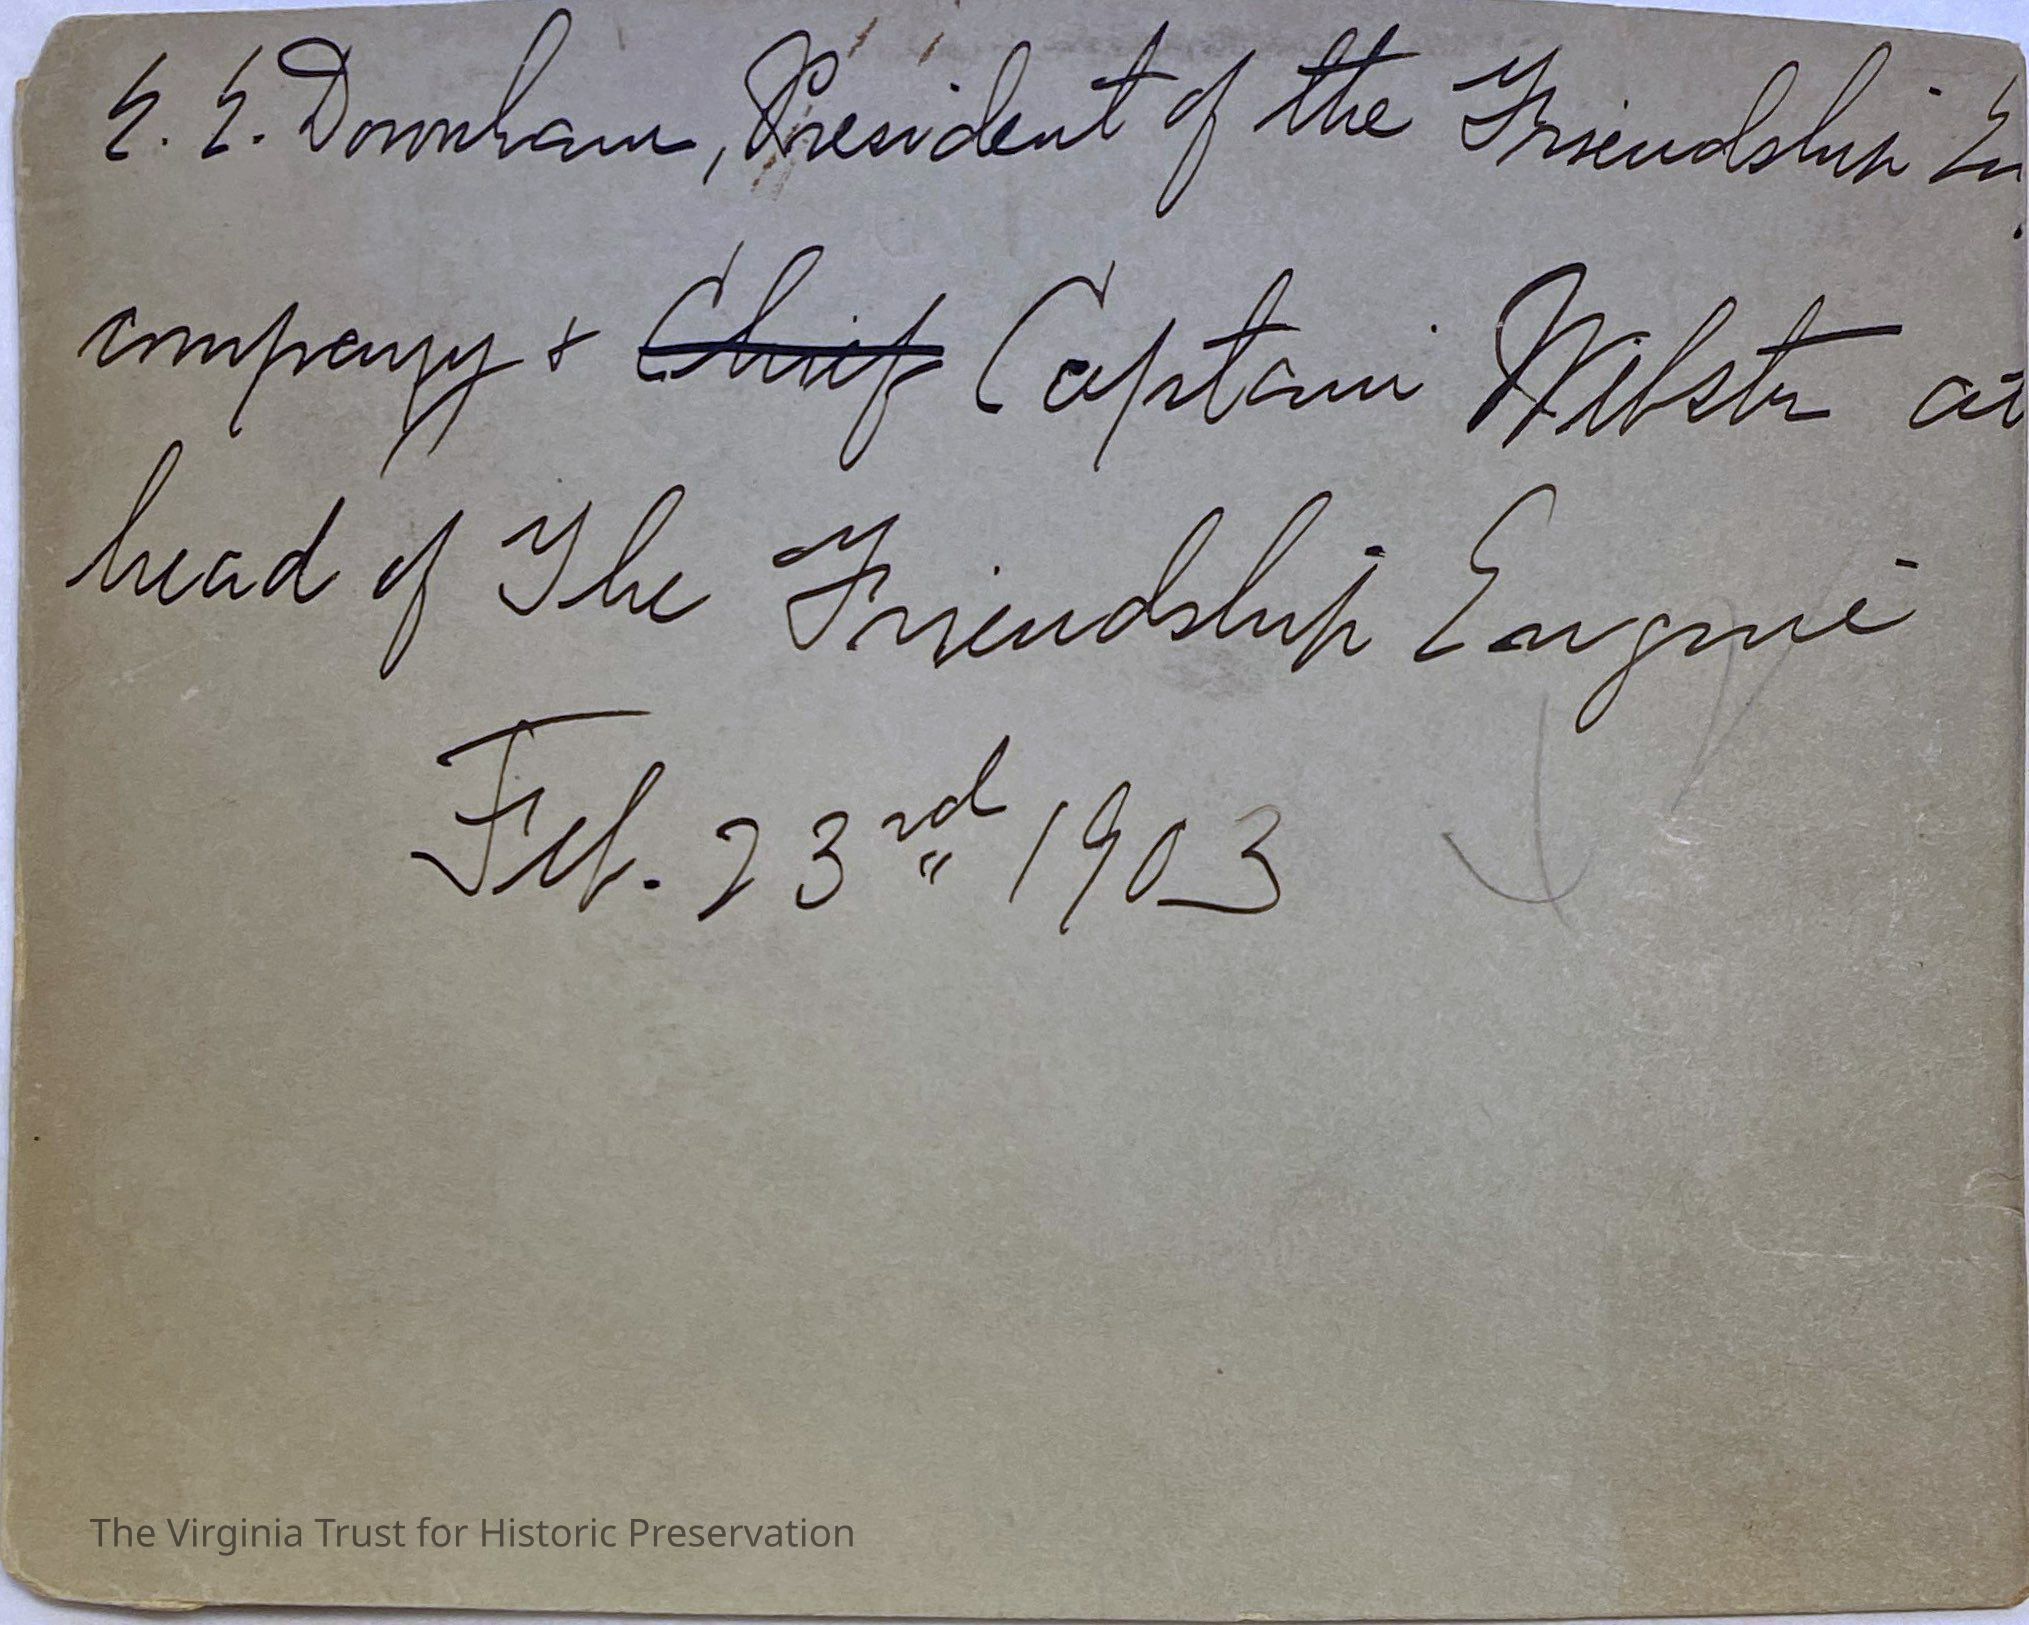 E. E. Downham, President of the Friendship En
company & Chief Captain Webster at
head of The Friendship Engine
Feb. 23rd 1903
The Virginia Trust for Historic Preservation